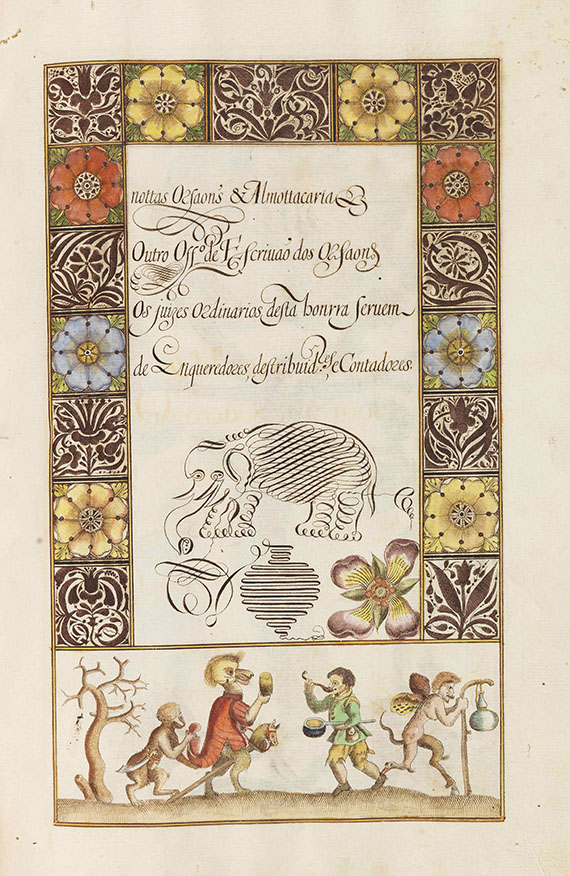 nottas Orfaons & Almottacaria
Outro Offo. de Escriuaõ dos Orfaons
Os juizes Ordinarios desta honrra seruem
de Enqueredores, destribuidres, e Contadores.